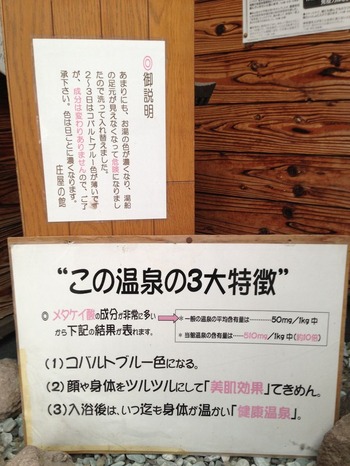 ◎御説明
あまりにも、お湯の色が濃くなり、湯船
の足元が見えなくなって危険になりまし
たので洗って入れ替えました。
2〜3日はコバルトブルー色が薄いです
が、成分は変わりありませんので、ご了
承下さい。色は日ごとに濃くなります。
庄屋の館
“この温泉の3大特徴”
◎ メタケイ酸の成分が非常に多い
から下記の結果が表れます。
＊一般の温泉の平均含有量は……50mg/1kg中
＊当館温泉の含有量は……510mg/1kg中(約10倍)
(1)コバルトブルー色になる。
(2)顔や身体をツルツルにして「美肌効果」てきめん。
(3)入浴後は、いつ迄も身体が温かい「健康温泉」。